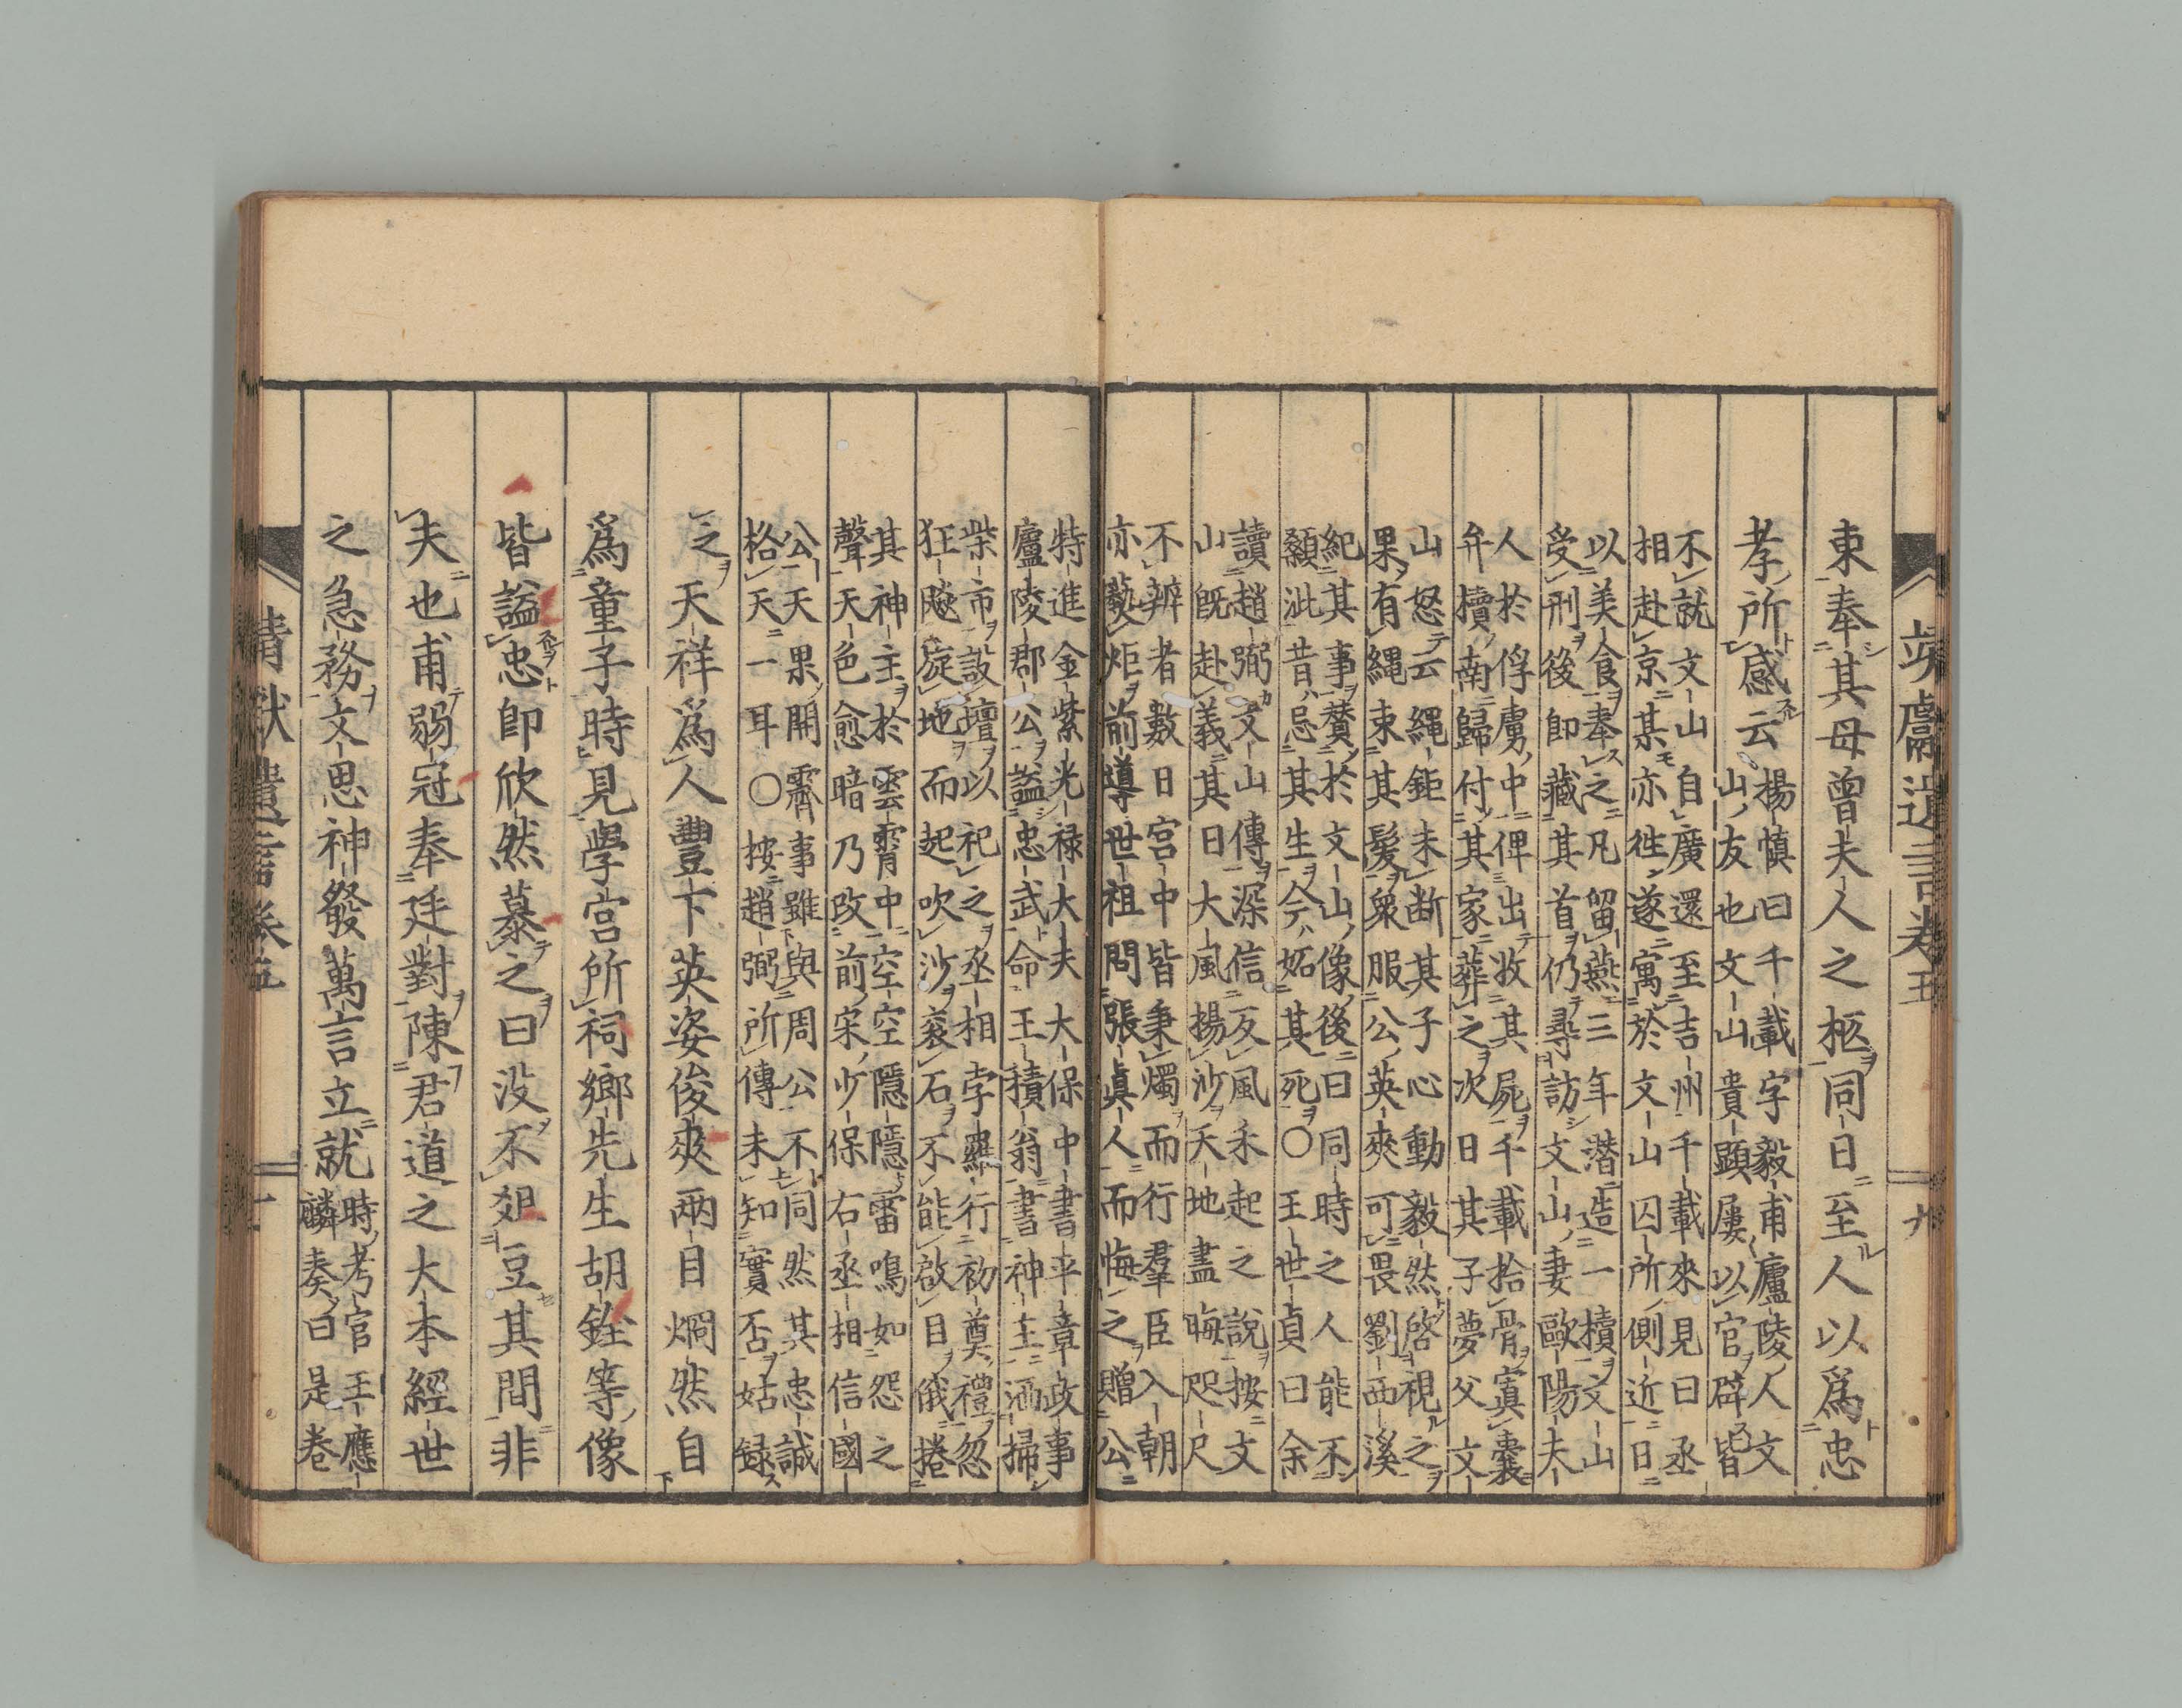 靖獻遺言卷五
九
東奉其母曾夫人之柩同日至人以爲忠
孝所感云
楊慎曰千載字毅甫廬陵人文
山友也文山貴顯屢以官辟皆
不就文山自廣還至吉州千載來見曰丞
相赴京某亦往遂寓於文山囚所側近日
以美食奉之凡留燕三年潛造一櫝文山
受刑後卽藏其首仍尋訪文山妻歐陽夫
人於俘虜中俾出收其屍千載拾骨寘囊
弁櫝南歸付其家葬之次日其子夢父文
山怒云繩鉅未断其子心動毅然啓視之
果有繩束其髮衆服公英爽可畏劉西溪
紀其事贊於文山像後曰同時之人能不
顙泚昔忌其生今妬其死〇王世貞曰余
讀趙弼文山傳深信反風禾起之說按文
山旣赴義其日大風揚沙天地盡晦咫尺
不辨者數日宮中皆秉燭而行羣臣入朝
亦爇炬前導世祖問張眞人而悔之贈公
特進金紫光祿大夫大保中書平章政事
廬陵郡公謚忠武命王積翁書神主洒掃
柴市設壇以祀之丞相孛羅行初奠禮忽
狂飈旋地而起吹沙衮石不能啟目俄捲
其神主於雲霄中空空隱隱雷鳴如怨之
聲天色愈暗乃改前宋少保右丞相信國
公天果開霽事雖與周公不同然其忠誠
格天一耳〇按趙弼所傳未知實否姑録
之天祥爲人豐下英姿俊爽兩目烱然自
爲童子時見學宮所祠鄉先生胡銓等像
皆謚忠卽欣然慕之曰没不爼豆其間非
夫也甫弱冠奉廷對陳君道之大本經世
之急務文思神發萬言立就
時考官王應
麟奏曰是卷
靖獻遺言卷五
十